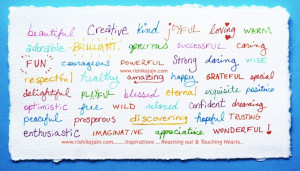 beautiful Creative kind JOYFUL loving WARM
adorable BRILLIANT generous SUCCESSFUL caring
FUN courageous POWERFUL Strong daring WISE
www.rishikajain.com
respectful healthy amazing happy GRATEFUL special
delightful PLAYFUL blessed eternal exquisite positive
optimistic free WILD relaxed confident dreaming
peaceful prosperous discovering hopeful TRUSTING
enthusiastic IMAGINATIVE appreciative WONDERFUL!
www.rishikajain.com....... Inspirations ... Reaching out & Touching Hearts..